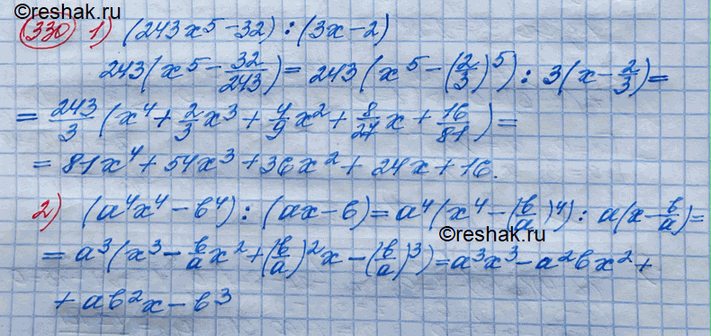 ©reshak.ru
330 1) (243x⁵-32) : (3x-2)
243(x⁵-32/243) = 243(x⁵-(2/3)⁵) : 3(x-2/3) =
= 243/3 (x⁴+2/3x³+4/9x²+8/27x+16/81) =
= 81x⁴+54x³+36x²+24x+16.
©reshak.ru
2) (a⁴x⁴-b⁴) : (ax-b) = a⁴(x⁴-(b/a)⁴) : a(x-b/a) =
= a³(x³-b/a x²+(b/a)²x-(b/a)³) = a³x³-a²bx²+
+ab²x-b³
©reshak.ru